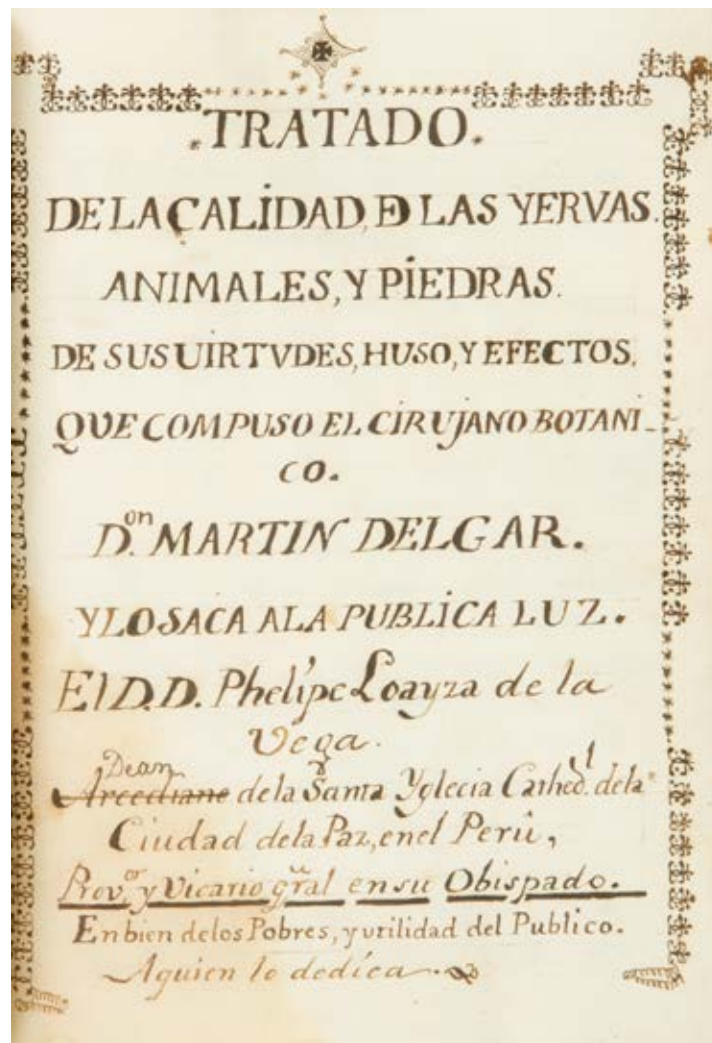 .TRATADO.
DE LA CALIDAD, DE LAS YERVAS.
ANIMALES, Y PIEDRAS.
DE SUS UIRTVDES, HUSO, Y EFECTOS,
QVE COMPUSO EL CIRUJANO BOTANI-
CO.
D.on MARTIN DELGAR.
Y LO SACA A LA PUBLICA LUZ.
El D.D. Phelipe Loayza de la
Vega.
Dean
Arcediano de la Santa Yglecia Cathed.l de la
Ciudad de la Paz, en el Perú,
Prov.or y Vicario gral en su Obispado.
En bien de los Pobres, y utilidad del Publico.
A quien lo dedica.